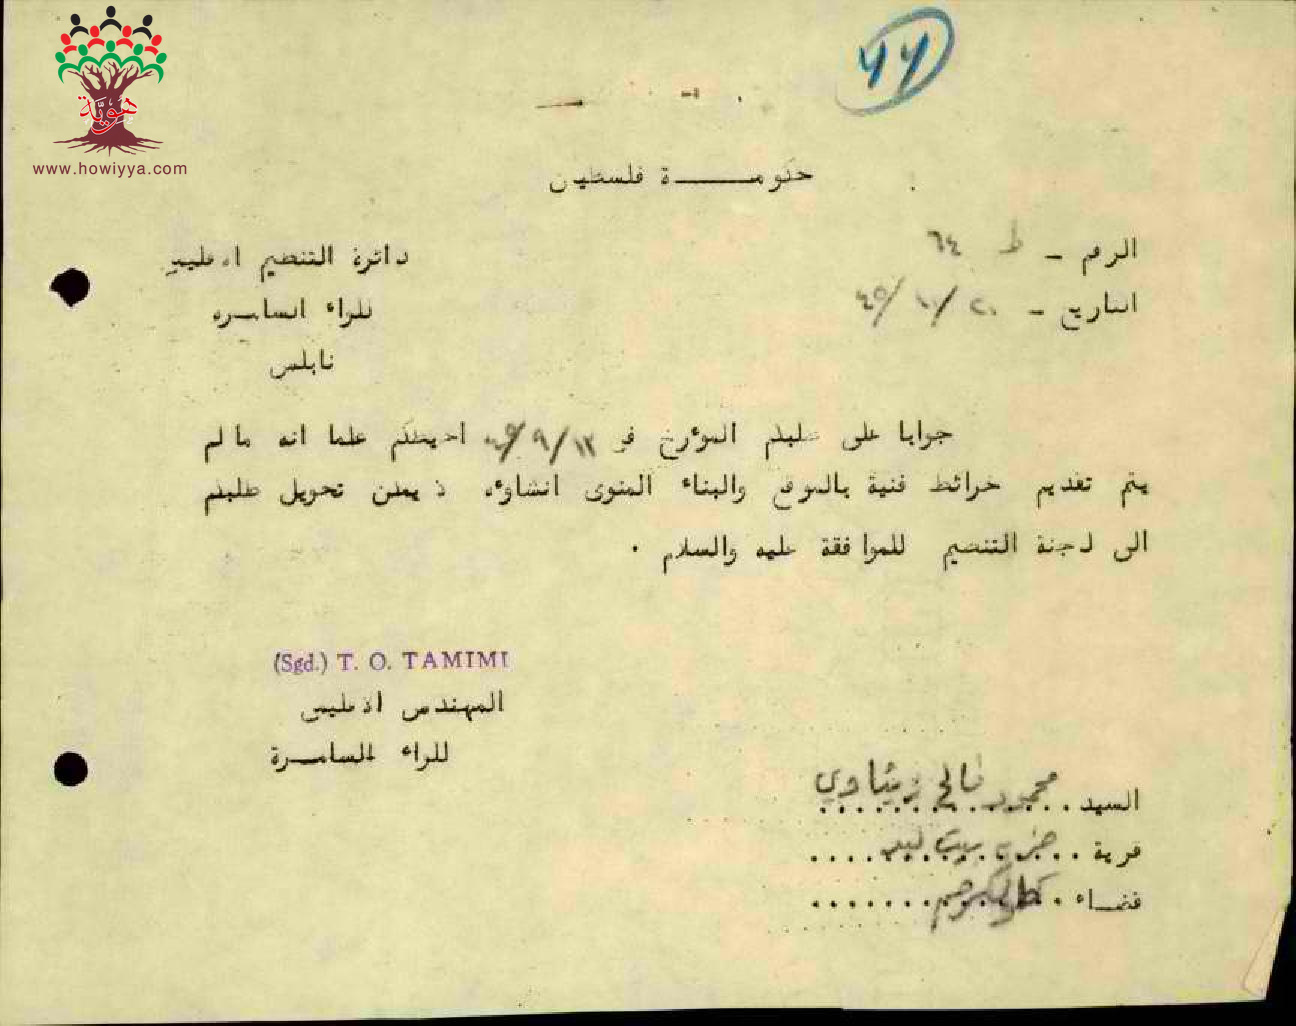 هوية
www.howiyya.com
٧٧
حكومـــة فلسطين
الرقم - ط ٦٤
التاريخ - ٢٠/١٠/٤٥
دائرة التنظيم الاقليمي
للواء السامـرة
نابلس
جوابا على طلبكم المؤرخ في ١٢/٩/٤٥ احيطكم علما انه ما لم
يتم تقديم خرائط فنية بالموقع والبناء المنوى انشاؤه لا يمكن تحويل طلبكم
الى لجنة التنظيم للموافقة عليه والسلام .
(Sgd.) T. O. TAMIMI
المهندس الاقليمي
للواء السامـرة
السيد محمود
قرية خربة بيت ليد
قضـاء طولكرم